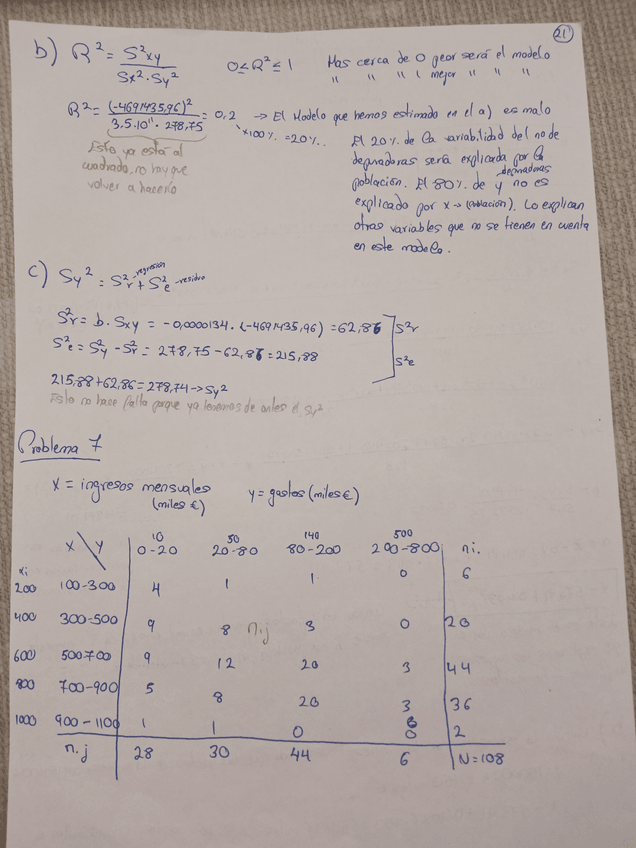 21
b) R² = S²xy / Sx²·Sy²   0 ≤ R² ≤ 1   Mas cerca de 0 peor será el modelo
" " " 1 mejor " " "
R² = (-4691435,96)² / 3,5·10¹¹ · 278,75 = 0,2 → El Modelo que hemos estimado en el a) es malo
×100% = 20%.
Esto ya está al
cuadrado, no hay que
volver a hacerlo
El 20% de la variabilidad del no de
depuradoras sería explicada por la
población. El 80% de y depuradoras no es
explicado por x → (población). Lo explican
otras variables que no se tienen en cuenta
en este modelo.
c) Sy² = S²r regresión + S²e residuo
S²r = b · Sxy = -0,0000134 · (-4691435,96) = 62,86 ] S²r
S²e = S²y - S²r = 278,75 - 62,86 = 215,88 ] S²e
215,88 + 62,86 = 278,74 → Sy²
Esto no hace falta porque ya tenemos de antes el Sy²
Problema 7
X = ingresos mensuales (miles €)   y = gastos (miles €)
10 50 140 500
X \ Y 0-20 20-80 80-200 200-800 ni.
xi
200 100-300 4 1 1 0 6
400 300-500 9 8 nij 3 0 20
600 500-700 9 12 20 3 44
800 700-900 5 8 20 3 36
1000 900-1100 1 1 0 0 2
n.j 28 30 44 6 N=108